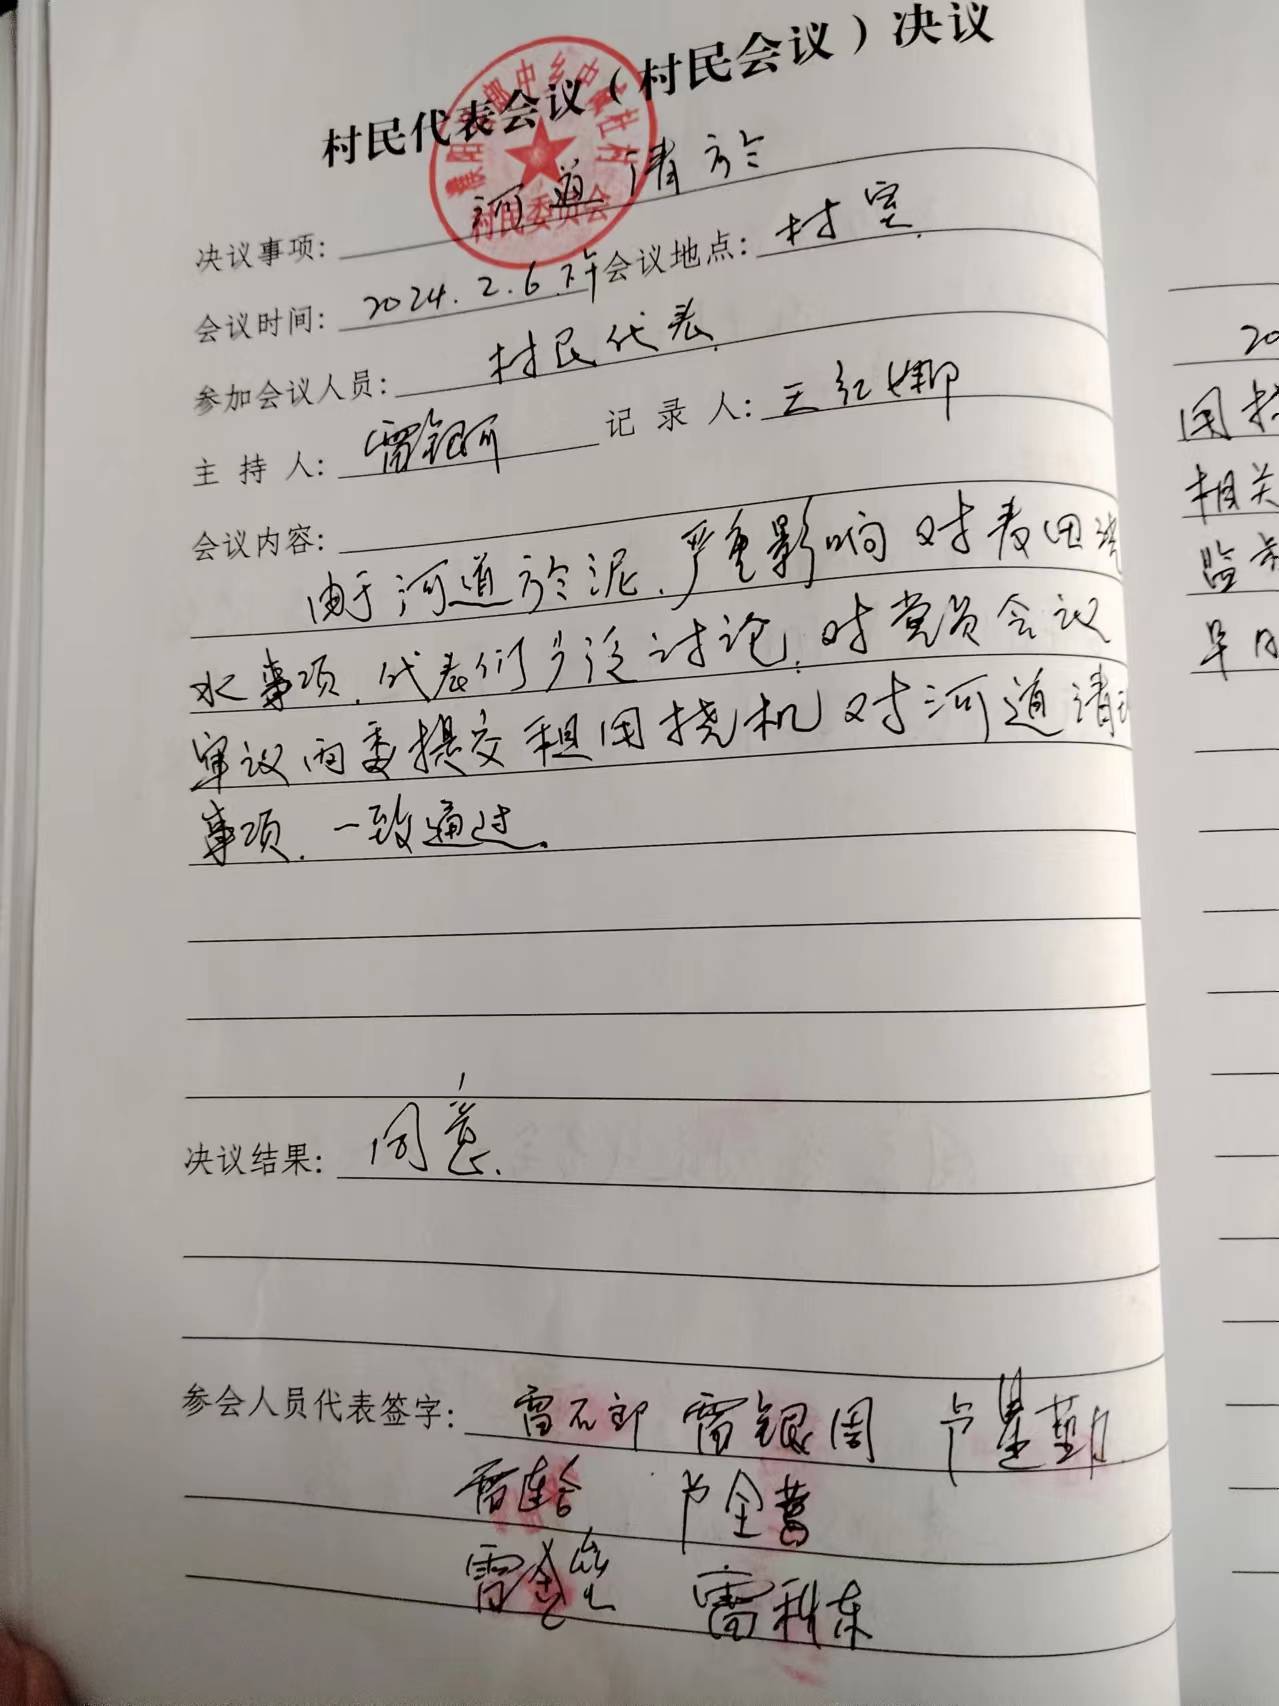 村民代表会议（村民会议）决议
村民委员会
决议事项：河道清於
会议时间：2024.2.6.下午 会议地点：村室.
参加会议人员：村民代表.
主持人：雷银所 记录人：王红娜
会议内容：
由于河道於泥.严重影响对麦田浇
水事项.代表们广泛讨论.对党员会议
审议两委提交租用挠机对河道清
事项.一致通过.
决议结果：同意.
参会人员代表签字：雷石郎 雷银周 卢 勤
雷 卢全
雷 雷利东
20
用
相关
监
早日